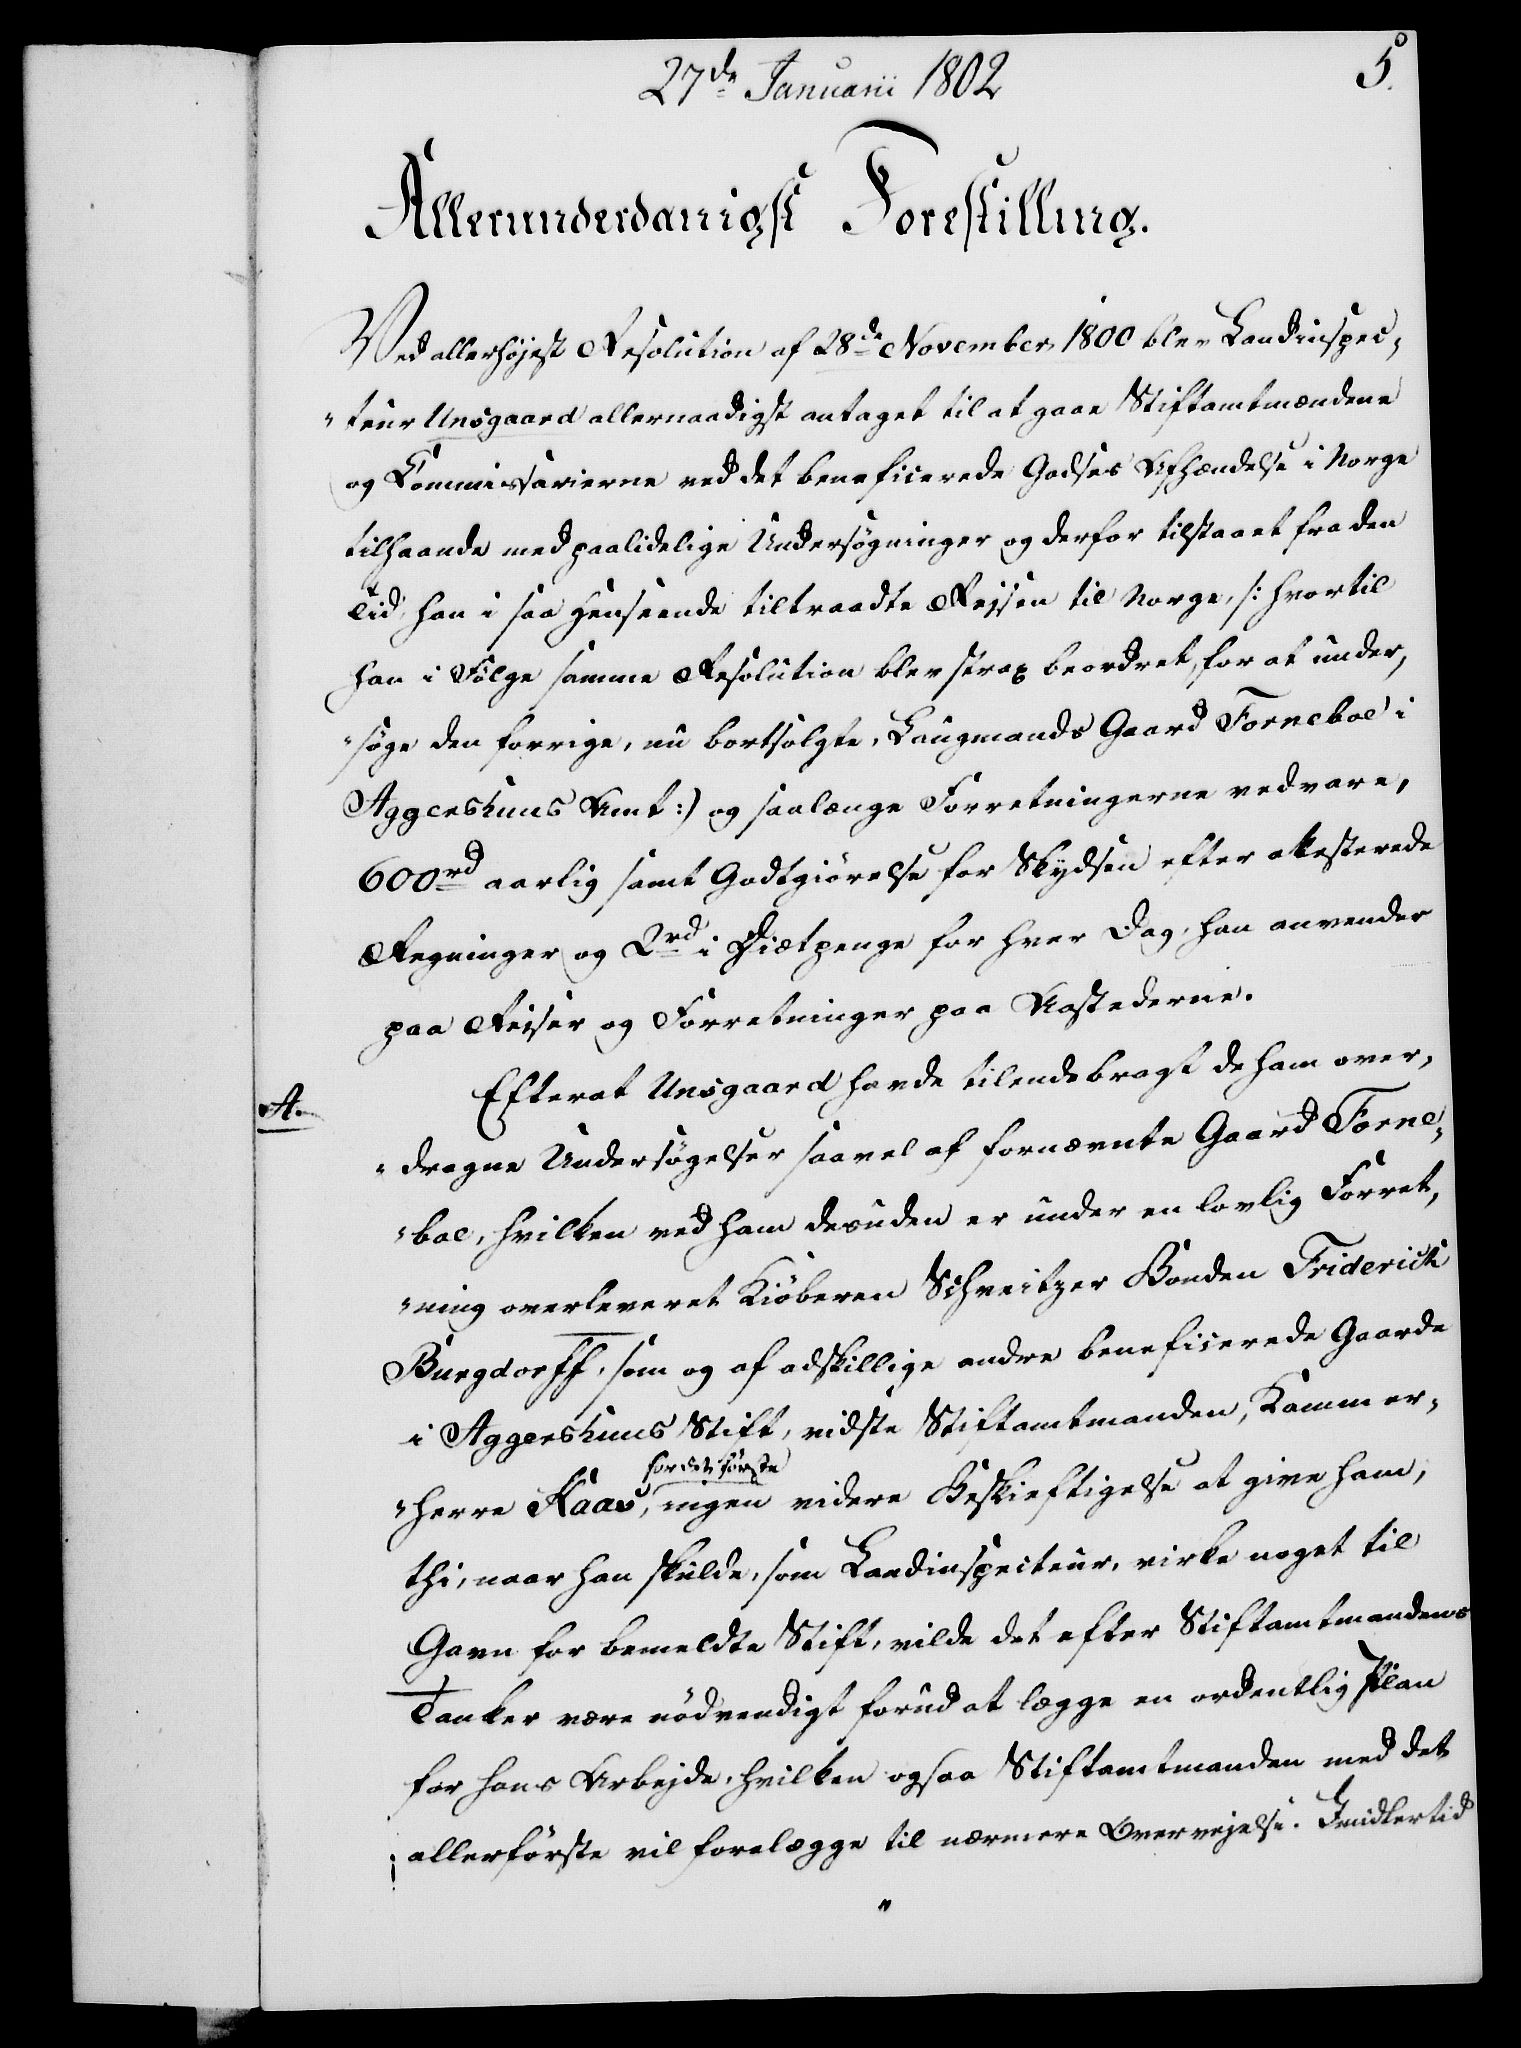 27de Januarii 1802
5.
Allerunderdanigst Forestilling.
Ved allerhøjest Resolution af 28de November 1800 blev Landinspec-
"teur Unsgaard allernaadigst antaget til at gaae Stiftamtmændene
og Commissarierne ved det beneficerede Godses Afhændelse i Norge
tilhaande med paalidelige Undersøgninger og derfor tilstaaet fra den
Tid, han i saa Henseende tiltraadte Rejsen til Norge, /: hvortil
han i Følge samme Resolution blev strax beordret, for at under-
"søge den forrige, nu bortsolgte, Laugmands Gaard Torneboe i
Aggershuus Amt :/ og saalænge Forretningerne vedvare,
600rd aarlig samt Godtgiørelse for Skydsen efter attesterede
Regninger og 2rd i Diætpenge for hver Dag, han anvender
paa Reiser og Forretninger paa Aastederne.
A.
Efterat Unsgaard havde tilendebragt de ham over-
"dragne Undersøgelser saavel af fornævnte Gaard Torne-
"boe, hvilken ved ham desuden er under en lovlig Forret-
"ning overleveret Kiøberen Schveitzer Bonden Friderich
Burgdorff, som og af adskillige andre beneficerede Gaarde
i Aggershuus Stift, vidste Stiftamtmanden, Kammer-
for det første
"herre Kaas, ingen videre Beskieftigelse at give ham,
thi, naar han skulde, som Landinspecteur, virke noget til
Gavn for bemeldte Stift, vilde det efter Stiftamtmandens
Tanker være nødvendigt forud at lægge en ordentlig Plan
for hans Arbejde, hvilken ogsaa Stiftamtmanden med det
allerførste vil forelægge til nærmere Overvejelse. Imidlertid
"